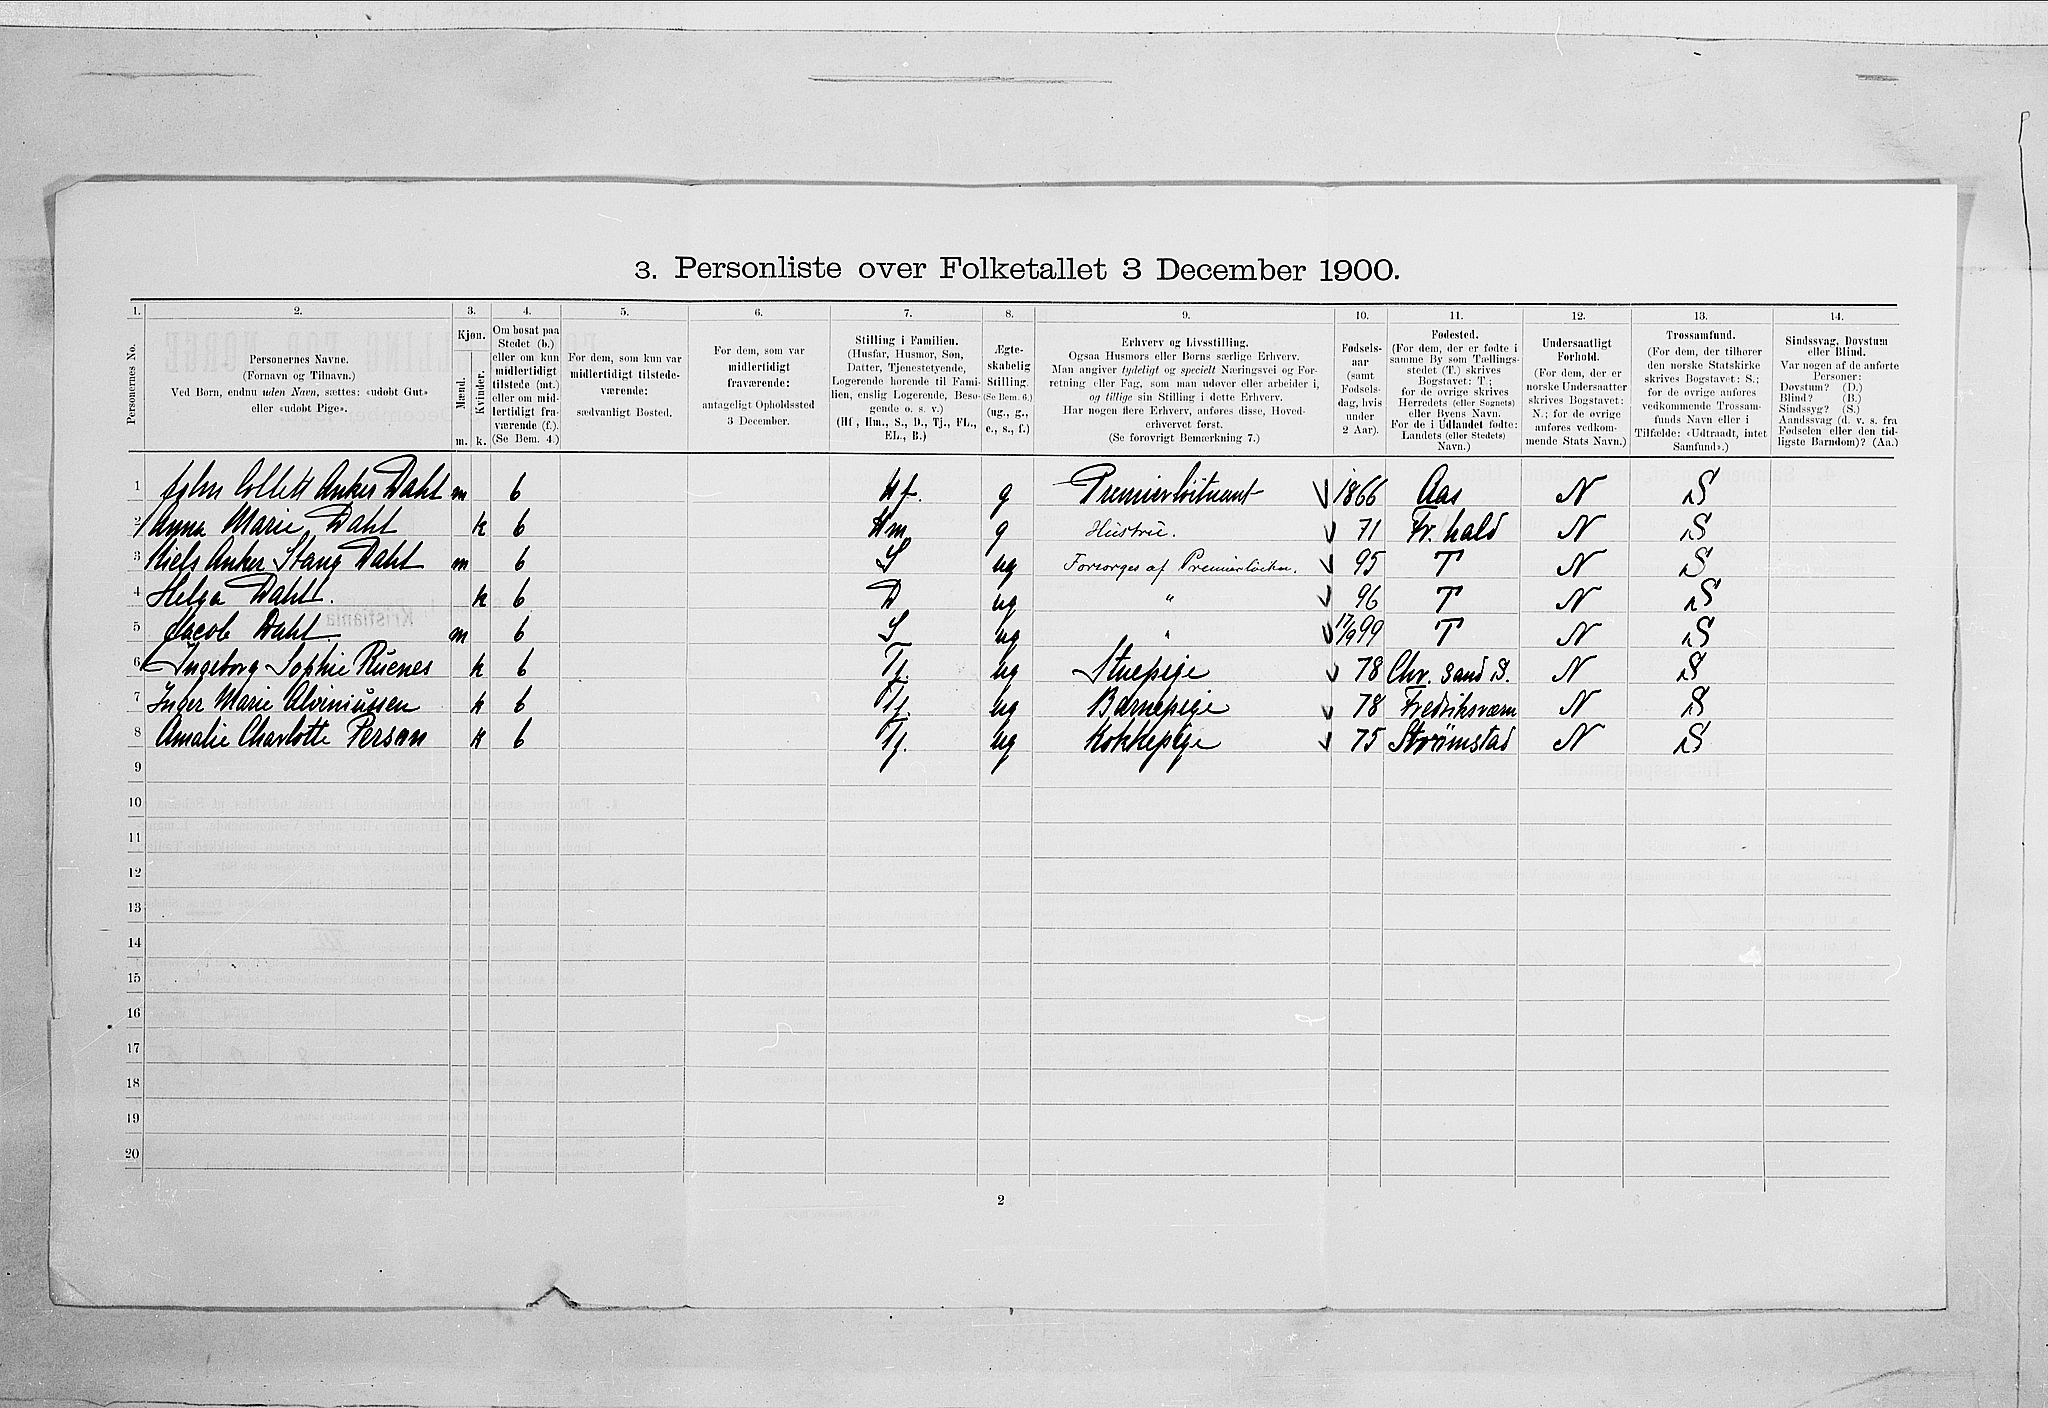 3. Personliste over Folketallet 3 December 1900.
1. 2. 3. 4. 5. 6. 7. 8. 9. 10. 11. 12. 13. 14.
Personernes No.
Personernes Navne.
(Fornavn og Tilnavn.)
Ved Børn, endnu uden Navn, sættes: «udøbt Gut»
eller «udøbt Pige».
Kjøn.
Mænd.
Kvinder.
m. k.
Om bosat paa
Stedet (b.)
eller om kun
midlertidigt
tilstede (mt.)
eller om mid-
lertidigt fra-
værende (f.).
(Se Bem. 4.)
For dem, som kun var
midlertidigt tilstede-
værende:
sædvanligt Bosted.
For dem, som var
midlertidigt
fraværende:
antageligt Opholdssted
3 December.
Stilling i Familien.
(Husfar, Husmor, Søn,
Datter, Tjenestetyende,
Logerende hørende til Fami-
lien, enslig Logerende, Besø-
gende o. s. v.)
(Hf., Hm., S., D., Tj., FL.,
EL., B.)
Ægte-
skabelig
Stilling.
(Se Bem. 6.)
(ug., g.,
e., s., f.)
Erhverv og Livsstilling.
Ogsaa Husmors eller Børns særlige Erhverv.
Man angiver tydeligt og specielt Næringsvei og For-
retning eller Fag, som man udøver eller arbeider i,
og tillige sin Stilling i dette Erhverv.
Har nogen flere Erhverv, anføres disse, Hoved-
erhvervet først.
(Se forøvrigt Bemærkning 7.)
Fødsels-
aar
(samt
Fødsels-
dag, hvis
under
2 Aar).
Fødested.
(For dem, der er fødte i
samme By som Tællings-
stedet (T.) skrives
Bogstavet: T;
for de øvrige skrives
Herredets (eller Sognets)
eller Byens Navn.
For de i Udlandet fødte:
Landets (eller Stedets)
Navn.)
Undersaatligt
Forhold.
(For dem, der er
norske Undersaatter
skrives Bogstavet:
N.; for de øvrige
anføres vedkom-
mende Stats Navn.)
Trossamfund.
(For dem, der tilhører
den norske Statskirke
skrives Bogstavet: S.;
for de øvrige anføres
vedkommende Trossam-
funds Navn eller i
Tilfælde: «Udtraadt, intet
Samfund».)
Sindssvag, Døvstum
eller Blind.
Var nogen af de anførte
Personer:
Døvstum? (D.)
Blind? (B.)
Sindssyg? (S.)
Aandssvag (d. v. s. fra
Fødselen eller den tid-
ligste Barndom)? (Aa.)
1 John Collett Anker Dahl m b Hf. g Premierløitnant 1866 Aas N S
2 Anna Marie Dahl k b Hm g Hustru. 71 Fr. hald N S
3 Niels Anker Stang Dahl m b S ug Forsorges af Premierløitn. 95 T N S
4 Helga Dahl. k b D ug " 96 T N S
5 Jacob Dahl m b S ug " 17/9 99 T N S
6 Ingeborg Sophie Ruenes k b Tj. ug Stuepige 78 Chr. sand S. N S
7 Inger Marie Alviniussen k b Tj. ug Barnepige 78 Fredriksværn N S
8 Amalie Charlotte Person k b Tj. ug Kokkepige 75 Strömstad N S
9
10
11
12
13
14
15
16
17
18
19
20
2
Kristiania